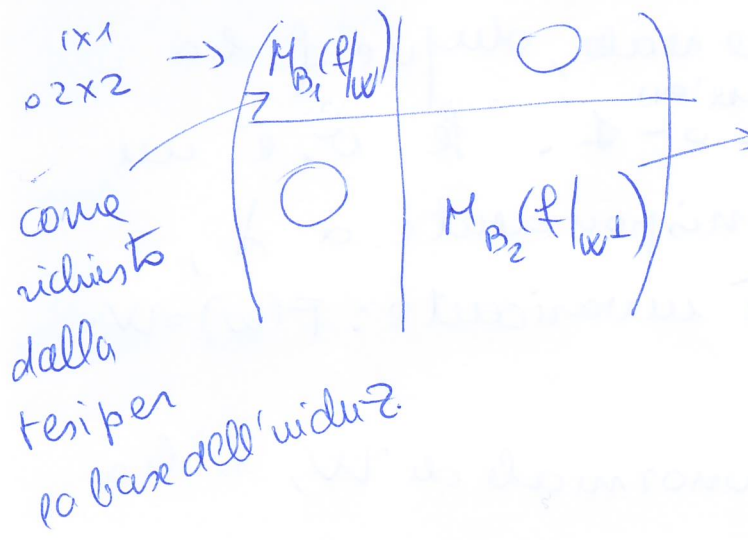 1x1
o 2x2 → M_{B_1}(f|_W) O
O M_{B_2}(f|_{W^⊥})
come
richiesto
dalla
tesi per
la base dell'induz.